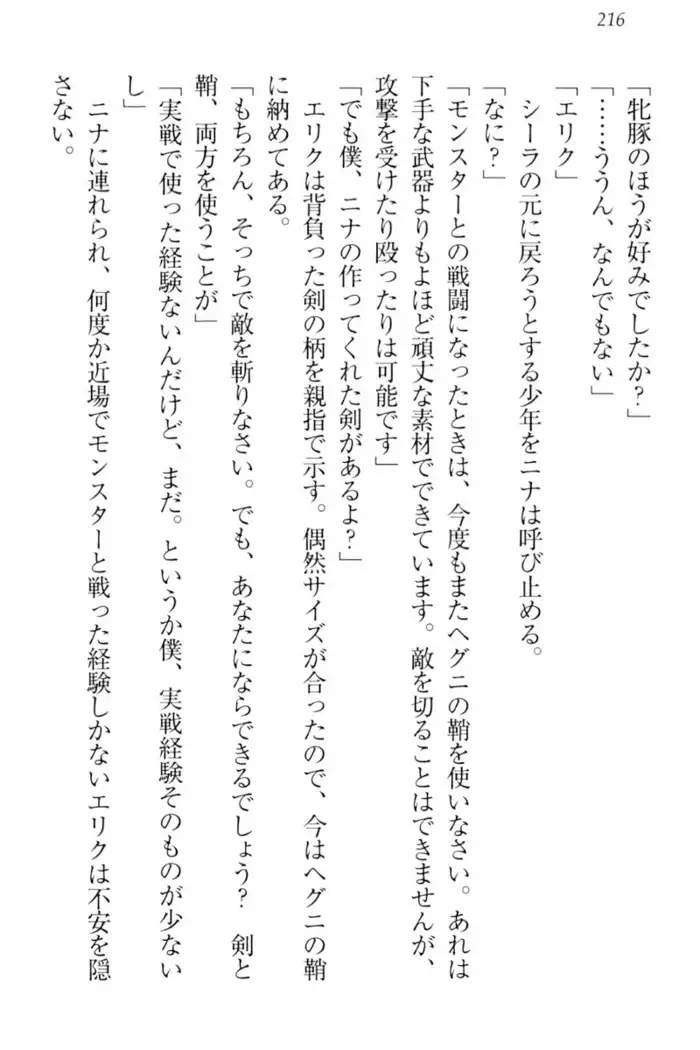 216
「牝豚のほうが好みでしたか？」
「……ううん、なんでもない」
「エリク」
　シーラの元に戻ろうとする少年をニナは呼び止める。
「なに？」
「モンスターとの戦闘になったときは、今度もまたヘグニの鞘を使いなさい。あれは
下手な武器よりもよほど頑丈な素材でできています。敵を切ることはできませんが、
攻撃を受けたり殴ったりは可能です」
「でも僕、ニナの作ってくれた剣があるよ？」
　エリクは背負った剣の柄を親指で示す。偶然サイズが合ったので、今はヘグニの鞘
に納めてある。
「もちろん、そっちで敵を斬りなさい。でも、あなたにならできるでしょう？　剣と
鞘、両方を使うことが」
「実戦で使った経験ないんだけど、まだ。というか僕、実戦経験そのものが少ない
し」
　ニナに連れられ、何度か近場でモンスターと戦った経験しかないエリクは不安を隠
さない。